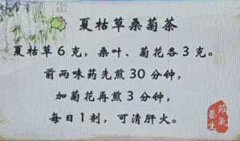 夏枯草桑菊茶
夏枯草6克，桑叶、菊花各3克。
前两味药先煎30分钟，
加菊花再煎3分钟，
每日1剂，可清肝火。